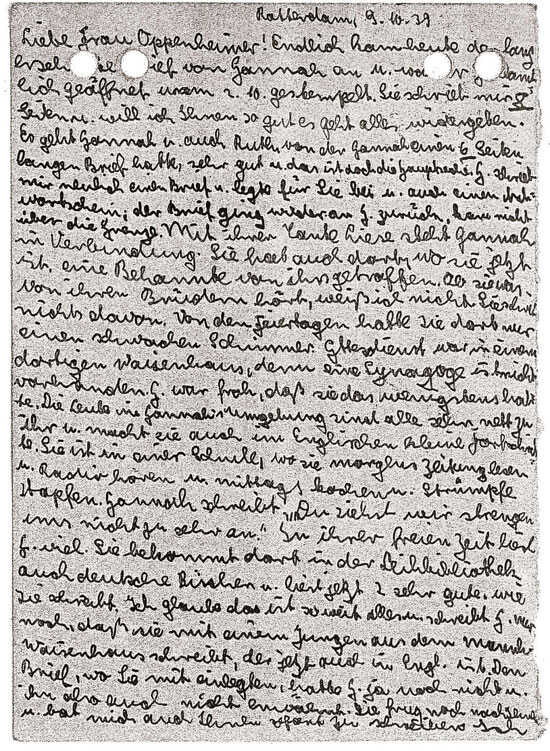 Rotterdam, 9.10.39
Liebe Frau Oppenheimer! Endlich kam heute der lang
ersehnte Brief von Hannah an u. war
lich geöffnet u. am 2. 10. gestempelt. Sie schrieb mir 8
Seiten u. will ich Ihnen so gut es geht alles wiedergeben.
Es geht Hannah u. auch Ruth, von der Hannah einen 6 Seiten
langen Brief hatte, sehr gut u. das ist doch die Hauptsache. H. schrieb
mir neulich einen Brief u. legte für Sie bei u. auch einen Ant-
wortschein; der Brief ging wieder an H. zurück, kam nicht
über die Grenze. Mit ihrer Tante Liese steht Hannah
in Verbindung. Sie hat auch dort, wo sie jetzt
ist, eine Bekannte von ihr getroffen. Ob sie was
von ihren Brüdern hört, weiß ich nicht. Sie schrieb
nichts davon. Von den Feiertagen hatte sie dort nur
einen schwachen Schimmer. G'ttesdienst war in einem
dortigen Waisenhaus, denn eine Synagoge ist nicht
vorhanden. H. war froh, daß sie das wenigstens hat-
te. Die Leute in Hannah's Umgebung sind alle sehr nett zu
ihr u. macht sie auch im Englischen kleine Fortschrit-
te. Sie ist in einer Schule, wo sie morgens Zeitung lesen
u. Radio hören u. mittags kochen u. Strümpfe
stopfen. Hannah schreibt, „Du siehst wir strengen
uns nicht zu sehr an." In ihrer freien Zeit liest
H. viel. Sie bekommt dort in der Leihbibliothek
auch deutsche Bücher u. liest jetzt 2 sehr gute, wie
sie schreibt. Ich glaube das ist so weit alles u. schreibt H. nur
noch, daß sie mit einem Jungen aus dem Mannh.
Waisenhaus schreibt, der jetzt auch in Engl. ist. Den
Brief, wo Sie mit anlegten, hatte H. ja noch nicht u.
ihn also auch nicht erwähnt. Sie frug noch nach
u. bat mich auch Ihnen sofort zu schreiben. Ich